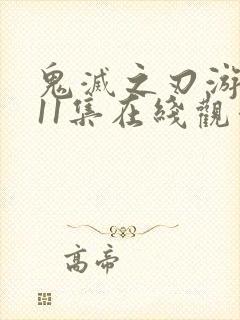 鬼滅之刃游
11集在綫觀
高帝